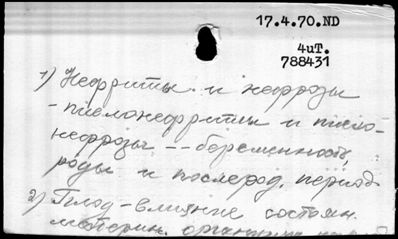 17.4.70.ND
4иТ.
788431
1) Нефриты и нефрозы
- пиелонефриты и пиело-
нефрозы -- беременность,
роды и послерод. период
2) Плод - влияние состоян.
материн. организма